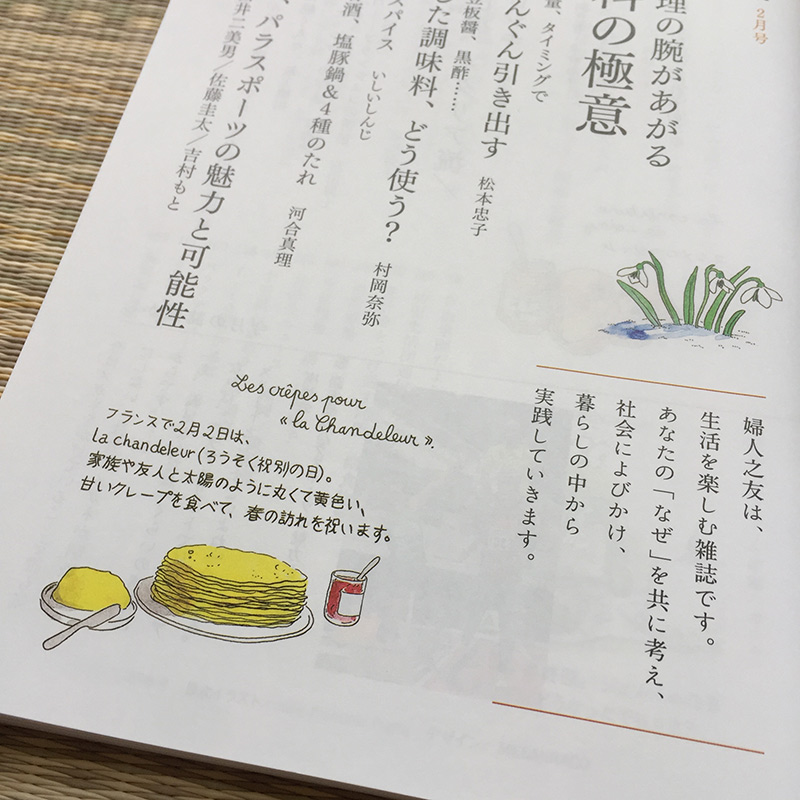 2月号
理の腕があがる
料の極意
量、タイミングで
んぐん引き出す 松本忠子
豆板醤、黒酢……
した調味料、どう使う？ 村岡奈弥
スパイス いしいしんじ
酒、塩豚鍋&4種のたれ 河合真理
、パラスポーツの魅力と可能性
井二美男／佐藤圭太／吉村もと
婦人之友は、
生活を楽しむ雑誌です。
あなたの「なぜ」を共に考え、
社会によびかけ、
暮らしの中から
実践していきます。
Les crêpes pour
« la Chandeleur ».
フランスで2月2日は、
la chandeleur(ろうそく祝別の日)。
家族や友人と太陽のように丸くて黄色い、
甘いクレープを食べて、春の訪れを祝います。